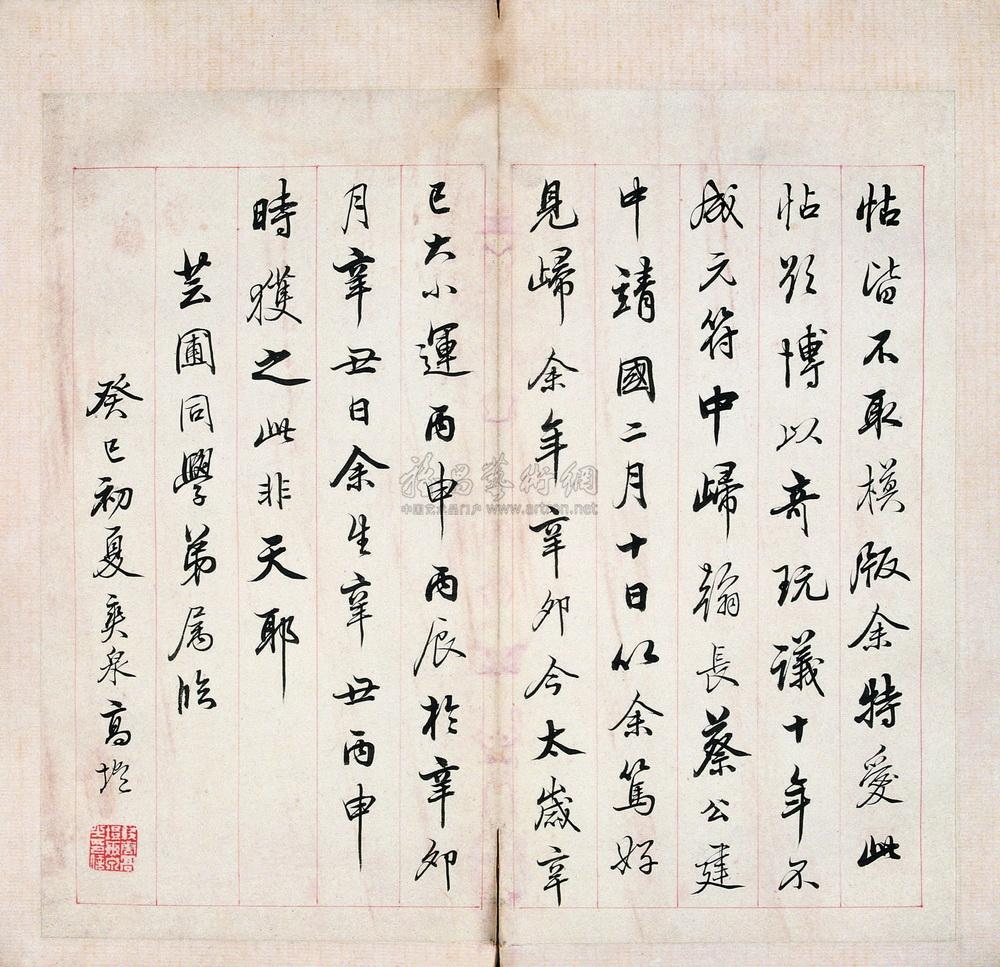 帖皆不取模版余特愛此
帖欲博以奇玩議十年不
成元符中歸翰長蔡公建
中靖國二月十日以余篤好
見歸余年辛卯今太歲辛
巳大小運丙申丙辰於辛卯
月辛丑日余生辛丑丙申
時獲之此非天耶
芸圃同學弟属臨
癸巳初夏爽泉高塏
雅昌藝術網
中国艺术品门户 www.artron.net